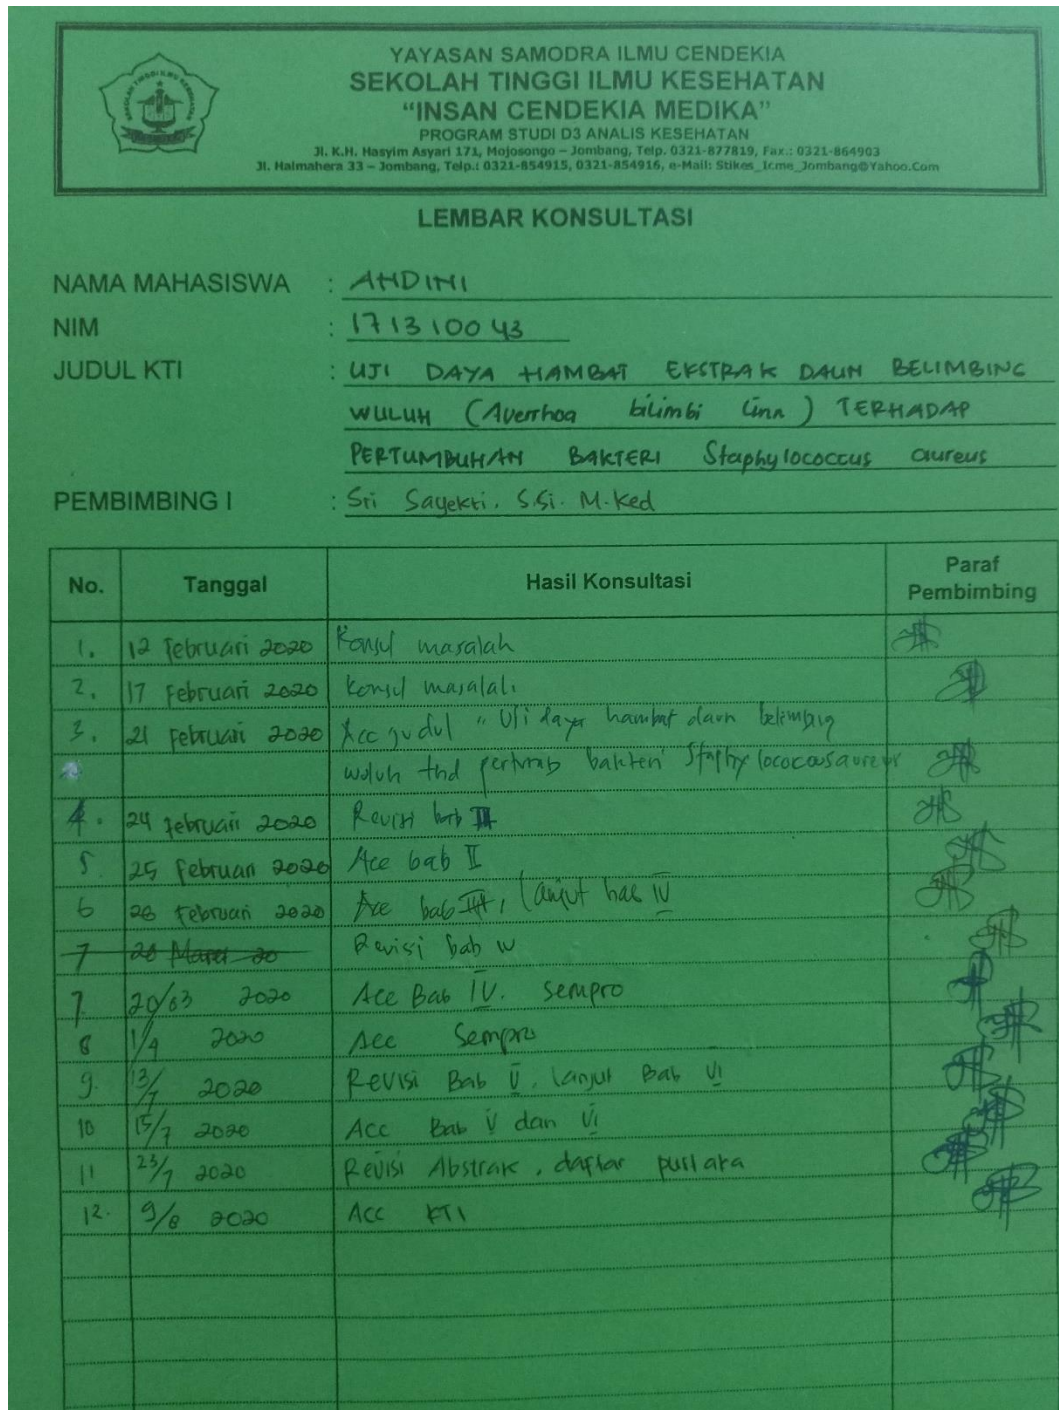 YAYASAN SAMODRA ILMU CENDEKIA
SEKOLAH TINGGI ILMU KESEHATAN
“INSAN CENDEKIA MEDIKA”
PROGRAM STUDI D3 ANALIS KESEHATAN
Jl. K.H. Hasyim Asyari 171, Mojosongo – Jombang, Telp. 0321-877819, Fax.: 0321-864903
Jl. Halmahera 33 – Jombang, Telp.: 0321-854915, 0321-854916, e-Mail: Stikes_Icme_Jombang@Yahoo.Com
LEMBAR KONSULTASI
NAMA MAHASISWA : ANDINI
NIM : 171310043
JUDUL KTI : UJI DAYA HAMBAT EKSTRAK DAUN BELIMBING
WULUH (Averrhoa bilimbi Linn) TERHADAP
PERTUMBUHAN BAKTERI Staphylococcus aureus
PEMBIMBING I : Sri Sayekti. S.Si. M.Ked
No. Tanggal Hasil Konsultasi Paraf Pembimbing
1. 12 Februari 2020 Konsul masalah
2. 17 Februari 2020 Konsul masalah
3. 21 Februari 2020 Acc judul " Uji daya hambat daun belimbing
wuluh thd bakteri
4. 24 Februari 2020 Revisi bab
5. 25 Februari 2020 Acc bab II
6 26 Februari 2020 Acc bab III, lanjut bab IV
7 20 Maret 20 Revisi bab IV
7. 20/03 2020 Acc Bab IV. Sempro
8 1/4 2020 Acc Sempro
9. 13/7 2020 Revisi Bab V, lanjut Bab VI
10 15/7 2020 Acc Bab V dan VI
11 23/7 2020 Revisi Abstrak, daftar pustaka
12. 9/8 2020 Acc KTI